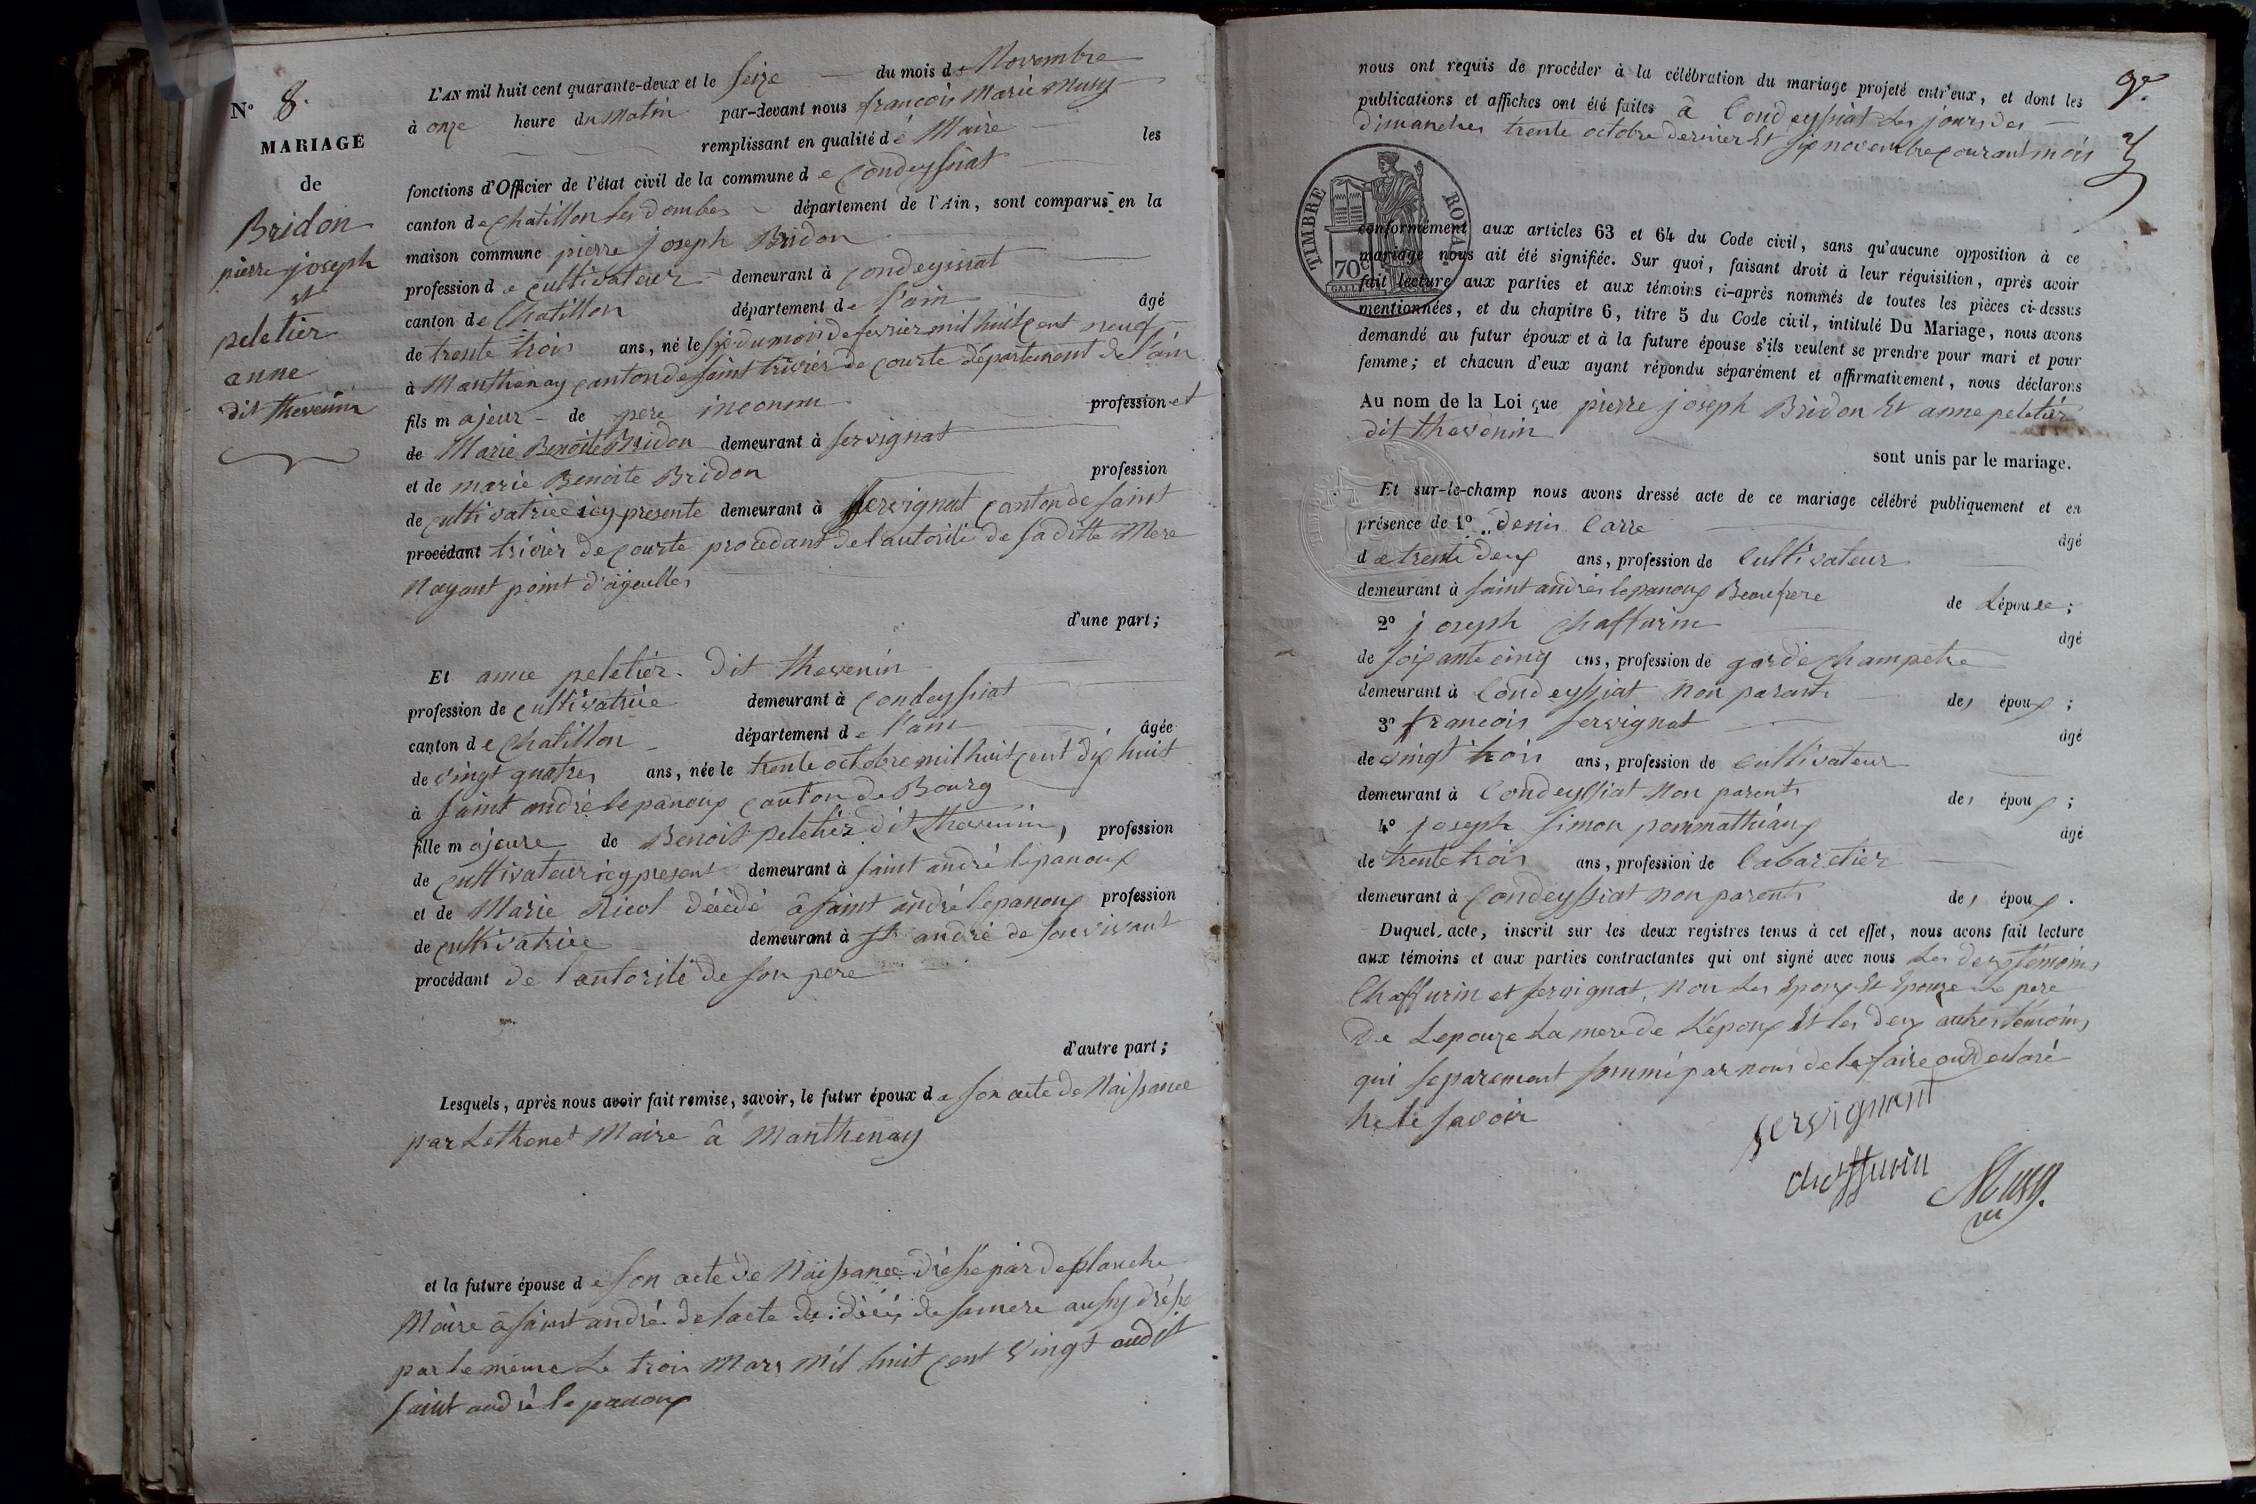 N° 8.
MARIAGE
de
Bridon
pierre joseph
et
peletier
anne
dit thevenin
L'AN mil huit cent quarante-deux et le seize du mois de Novembre
à onze heure du Matin par-devant nous françois Marie Musy
remplissant en qualité dé Maire les
fonctions d'Officier de l'état civil de la commune de Condeyssiat
canton de Chatillon les dombes département de l'Ain, sont comparus en la
maison commune pierre joseph Bridon
profession de cultivateur demeurant à Condeyssiat
canton de Chatillon département de l'ain âgé
de trente trois ans, né le six du mois de fevrier mil huit cent neuf
à Manthenay canton de saint trivier de courte département de l'ain
fils majeur de pere inconnu profession et
de Marie Benoite Bridon demeurant à servignat
et de marie Benoite Bridon profession
de cultivatrice icy presente demeurant à servignat canton de saint
procédant trivier de courte procedant de l'autorité de sa ditte Mere
Nayant point d'ajeulles
d'une part;
Et anne peletier dit thevenin
profession de cultivatrice demeurant à Condeyssiat
canton de Chatillon département de l'ain âgée
de vingt quatres ans, née le trente octobre mil huit cent dix huit
à saint andré lepanoux canton de Bourg
fille majeure de Benoit peletier dit thevenin, profession
de cultivateur icy present demeurant à saint andré lepanoux
et de Marie Nicol décédé à saint andré lepanoux profession
de cultivatrice demeurant à st andré de son vivant
procédant de l'autorité de son pere
d'autre part;
Lesquels, après nous avoir fait remise, savoir, le futur époux de son acte de Naissance
par Lethenet Maire à Manthenay
et la future épouse de son acte de Naissance dressé par deplanche
Maire à saint andré de lacte de décés de sa mere aussy dréssé
par le même le trois Mars mil huit cent vingt audit
saint andré le panoux
nous ont requis de procéder à la célébration du mariage projeté entr'eux, et dont les
publications et affiches ont été faites à Condeyssiat les jours des
dimanches trente octobre dernier Et six novembre courant mois
TIMBRE ROYAL
70c
conformément aux articles 63 et 64 du Code civil, sans qu'aucune opposition à ce
mariage nous ait été signifiée. Sur quoi, faisant droit à leur réquisition, après avoir
fait lecture aux parties et aux témoins ci-après nommés de toutes les pièces ci-dessus
mentionnées, et du chapitre 6, titre 5 du Code civil, intitulé Du Mariage, nous avons
demandé au futur époux et à la future épouse s'ils veulent se prendre pour mari et pour
femme; et chacun d'eux ayant répondu séparément et affirmativement, nous déclarons
Au nom de la Loi que pierre joseph Bridon Et anne peletier
dit thevenin
sont unis par le mariage.
Et sur-le-champ nous avons dressé acte de ce mariage célébré publiquement et en
présence de 1° denis Carre âgé
de trente deux ans, profession de Cultivateur
demeurant à saint andrés lepanoux Beaufrere de Lépouse;
2° joseph Chaffurin âgé
de soixante cinq ans, profession de garde Champetre
demeurant à Condeyssiat Non parent des époux;
3° francois servignat âgé
de vingt trois ans, profession de Cultivateur
demeurant à Condeyssiat Non parents des époux;
4° joseph simon pommathiaux âgé
de trente trois ans, profession de Cabaretier
demeurant à Condeyssiat non parents des époux.
Duquel acte, inscrit sur les deux registres tenus à cet effet, nous avons fait lecture
aux témoins et aux parties contractantes qui ont signé avec nous Les deux témoins
Chaffurin et servignat, Non Les Epoux Et Epouze Le pere
De Lepouze La mere de L'époux Et les deux autres témoins
qui separement sommé par nous de le faire ont declaré
Ne le savoir
servignant
chaffurin
Musy.